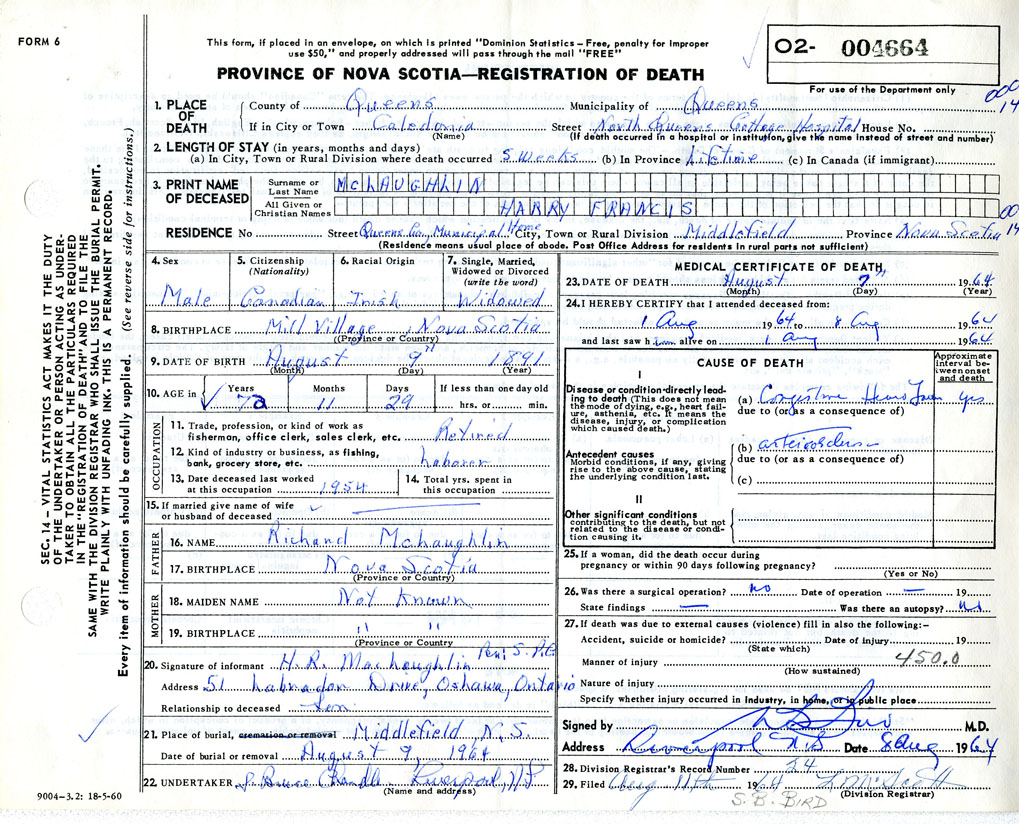 FORM 6
This form, if placed in an envelope, on which is printed "Dominion Statistics – Free, penalty for improper
use $50," and properly addressed will pass through the mail "FREE"
PROVINCE OF NOVA SCOTIA—REGISTRATION OF DEATH
02- 004664
For use of the Department only
1. PLACE OF DEATH County of Queens Municipality of Queens
If in City or Town Caledonia Street North Queens Cottage Hospital House No.
(Name) (If death occurred in a hospital or institution, give the name instead of street and number)
2. LENGTH OF STAY (in years, months and days)
(a) In City, Town or Rural Division where death occurred 5 weeks (b) In Province Lifetime (c) In Canada (if immigrant)
3. PRINT NAME OF DECEASED Surname or Last Name McLAUGHLIN
All Given or Christian Names HARRY FRANCIS
RESIDENCE No Street Queens Co., Municipal Home City, Town or Rural Division Middlefield Province Nova Scotia
(Residence means usual place of abode. Post Office Address for residents in rural parts not sufficient)
4. Sex Male
5. Citizenship (Nationality) Canadian
6. Racial Origin Irish
7. Single, Married, Widowed or Divorced (write the word) Widowed
8. BIRTHPLACE Mill Village, Nova Scotia
(Province or Country)
9. DATE OF BIRTH August 9th 1891
(Month) (Day) (Year)
10. AGE in Years 72 Months 11 Days 29 If less than one day old hrs. or min.
OCCUPATION
11. Trade, profession, or kind of work as fisherman, office clerk, sales clerk, etc. Retired
12. Kind of industry or business, as fishing, bank, grocery store, etc. Laborer
13. Date deceased last worked at this occupation 1954
14. Total yrs. spent in this occupation
15. If married give name of wife or husband of deceased
FATHER
16. NAME Richard McLaughlin
17. BIRTHPLACE Nova Scotia
(Province or Country)
MOTHER
18. MAIDEN NAME Not Known
19. BIRTHPLACE " "
(Province or Country)
20. Signature of informant H. R. MacLaughlin Per: S.
Address 51 Labrador Drive, Oshawa, Ontario
Relationship to deceased Son
21. Place of burial, cremation or removal Middlefield, N.S.
Date of burial or removal August 9, 1964
22. UNDERTAKER Bruce Chandler Liverpool, N.S.
(Name and address)
9004–3.2: 18-5-60
MEDICAL CERTIFICATE OF DEATH
23. DATE OF DEATH August 7th, 1964
(Month) (Day) (Year)
24. I HEREBY CERTIFY that I attended deceased from:
1 Aug 1964 to 8 Aug 1964
and last saw him alive on 1 Aug 1964
CAUSE OF DEATH
Approximate interval between onset and death
I
Disease or condition directly leading to death (This does not mean the mode of dying, e.g., heart failure, asthenia, etc. It means the disease, injury, or complication which caused death.)
(a) Congestive yrs
due to (or as a consequence of)
Antecedent causes
Morbid conditions, if any, giving rise to the above cause, stating the underlying condition last.
(b)
due to (or as a consequence of)
(c)
II
Other significant conditions contributing to the death, but not related to the disease or condition causing it.
25. If a woman, did the death occur during pregnancy or within 90 days following pregnancy?
(Yes or No)
26. Was there a surgical operation? no Date of operation — 19
State findings — Was there an autopsy? no
27. If death was due to external causes (violence) fill in also the following:–
Accident, suicide or homicide? Date of injury 19
(State which)
Manner of injury 450.0
(How sustained)
Nature of injury
Specify whether injury occurred in Industry, in home, or in public place
Signed by M.D.
Address Liverpool N.S Date 8 Aug 1964
28. Division Registrar's Record Number 24
29. Filed Aug 11th 1964
(Division Registrar)
S. B. BIRD
000
14
00
14
SEC. 14 – VITAL STATISTICS ACT MAKES IT THE DUTY
OF THE UNDERTAKER OR PERSON ACTING AS UNDER-
TAKER TO OBTAIN ALL THE PARTICULARS REQUIRED
IN THE "REGISTRATION OF DEATH" AND TO FILE THE
SAME WITH THE DIVISION REGISTRAR WHO SHALL ISSUE THE BURIAL PERMIT.
WRITE PLAINLY WITH UNFADING INK. THIS IS A PERMANENT RECORD.
Every item of information should be carefully supplied. (See reverse side for instructions.)